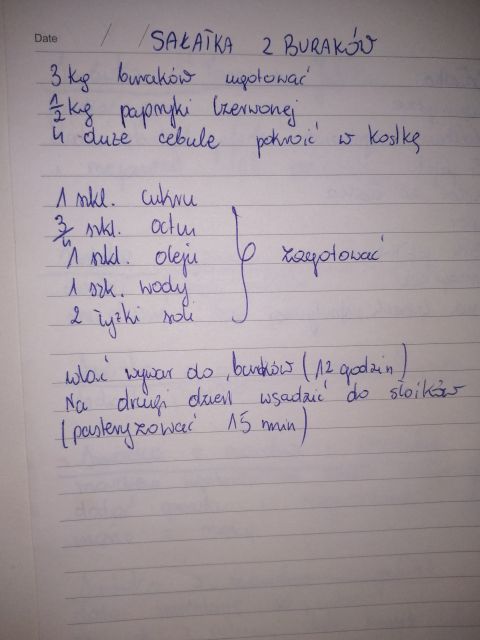 Date / /
SAŁATKA Z BURAKÓW
3 kg buraków ugotować
1/2 kg papryki czerwonej
4 duże cebule pokroić w kostkę
1 szkl. cukru
3/4 szkl. octu
1 szkl. oleju
1 szk. wody
2 łyżki soli
zagotować
wlać wywar do buraków (12 godzin)
Na drugi dzień wsadzić do słoików
(pasteryzować 15 min)